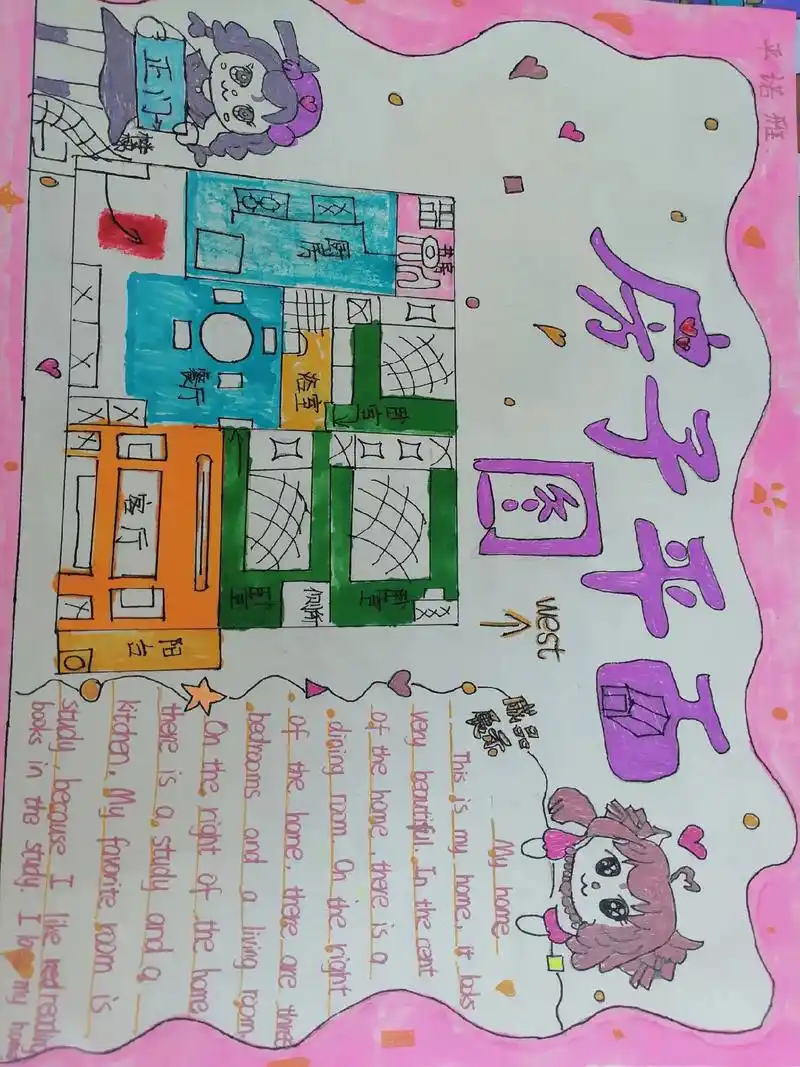 平诺雅
房子平面图
west
正门
书房
厨房
餐厅
浴室
卧室
客厅
卧室
厕所
卧室
阳台
展示
My home
This is my home, it looks
very beautiful. In the cent
of the home, there is a
dining room. On the right
of the home, there are three
bedrooms and a living room.
On the right of the home
there is a study and a
kitchen. My favorite room is
study, because I like reading
books in the study. I my home